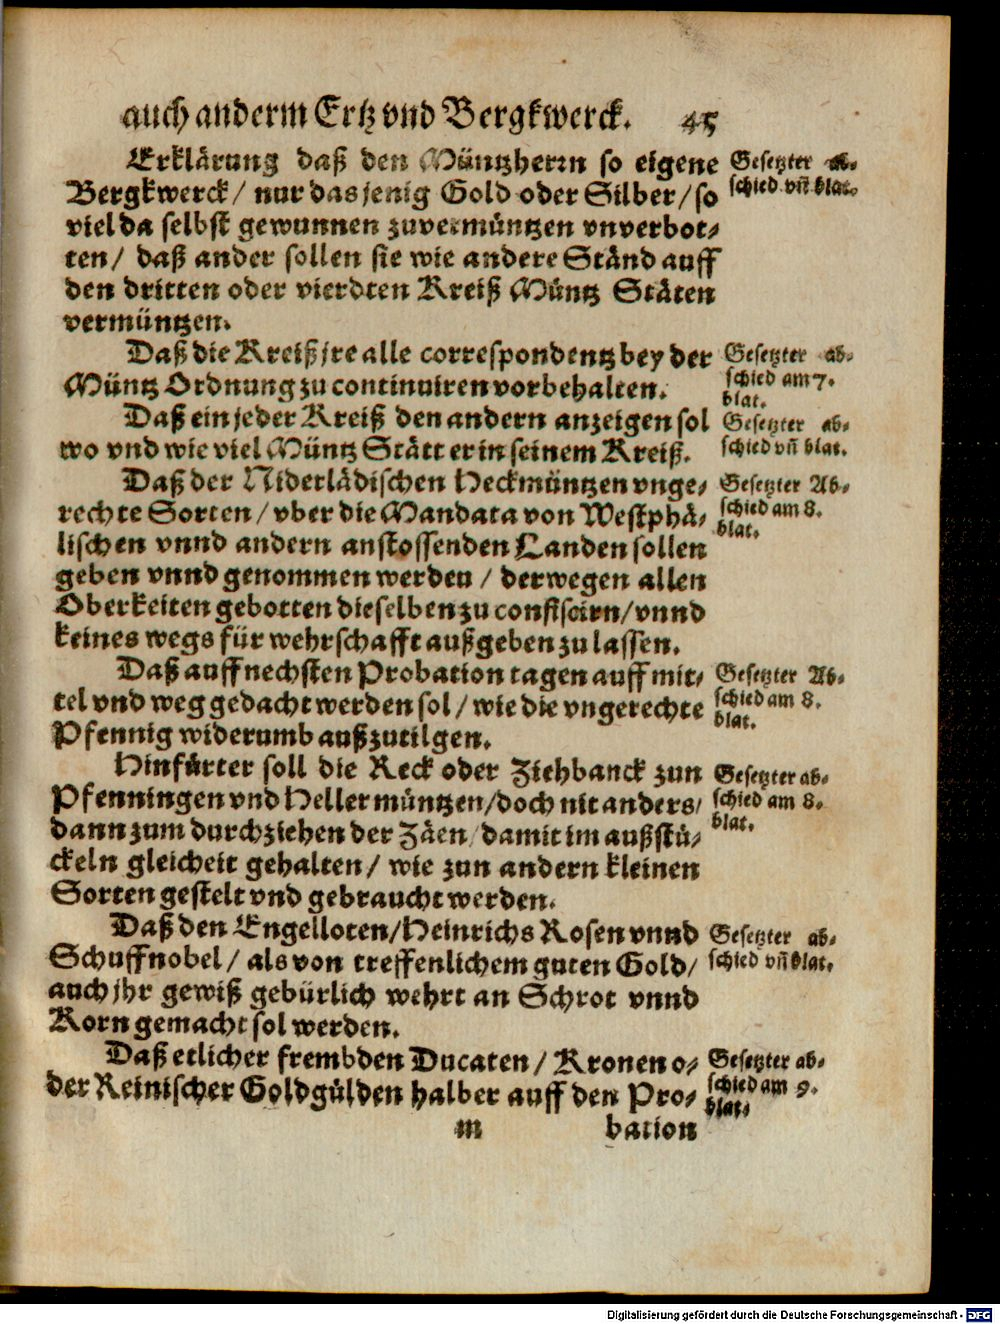 auch anderm Ertz vnd Bergkwerck. 45
Erklärung daß den Müntzherrn so eigene
Bergkwerck / nur das jenig Gold oder Silber / so
viel da selbst gewunnen zuvermüntzen vnverbot⸗
ten / daß ander sollen sie wie andere Ständ auff
den dritten oder vierdten Kreiß Müntz Stäten
vermüntzen.
Gesetzter ab⸗
schied vñ blat.
Daß die Kreiß jre alle correspondentz bey der
Müntz Ordnung zu continuiren vorbehalten.
Gesetzter ab⸗
schied am 7.
blat.
Daß ein jeder Kreiß den andern anzeigen sol
wo vnd wie viel Müntz Stätt er in seinem Kreiß.
Gesetzter ab⸗
schied vñ blat.
Daß der Niderlädischen Heckmüntzen vnge⸗
rechte Sorten / vber die Mandata von Westphä⸗
lischen vnnd andern anstossenden Landen sollen
geben vnnd genommen werden / derwegen allen
Oberkeiten gebotten dieselben zu confiscirn / vnnd
keines wegs für wehrschafft außgeben zu lassen.
Gesetzter Ab⸗
schied am 8.
blat.
Daß auff nechsten Probation tagen auff mit⸗
tel vnd weg gedacht werden sol / wie die vngerechte
Pfennig widerumb außzutilgen.
Gesetzter Ab⸗
schied am 8.
blat.
Hinfürter soll die Reck oder Ziehbanck zun
Pfenningen vnd Heller müntzen / doch nit anders /
dann zum durchziehen der Zäen / damit im außstü⸗
ckeln gleicheit gehalten / wie zun andern kleinen
Sorten gestelt vnd gebraucht werden.
Gesetzter ab⸗
schied am 8.
blat.
Daß den Engelloten / Heinrichs Rosen vnnd
Schuffnobel / als von treffenlichem guten Gold /
auch jhr gewiß gebürlich wehrt an Schrot vnnd
Korn gemacht sol werden.
Gesetzter ab⸗
schied vñ blat.
Daß etlicher frembden Ducaten / Kronen o⸗
der Reinischer Goldgülden halber auff den Pro⸗
Gesetzter ab⸗
schied am 9.
blat.
m bation
Digitalisierung gefördert durch die Deutsche Forschungsgemeinschaft - DFG